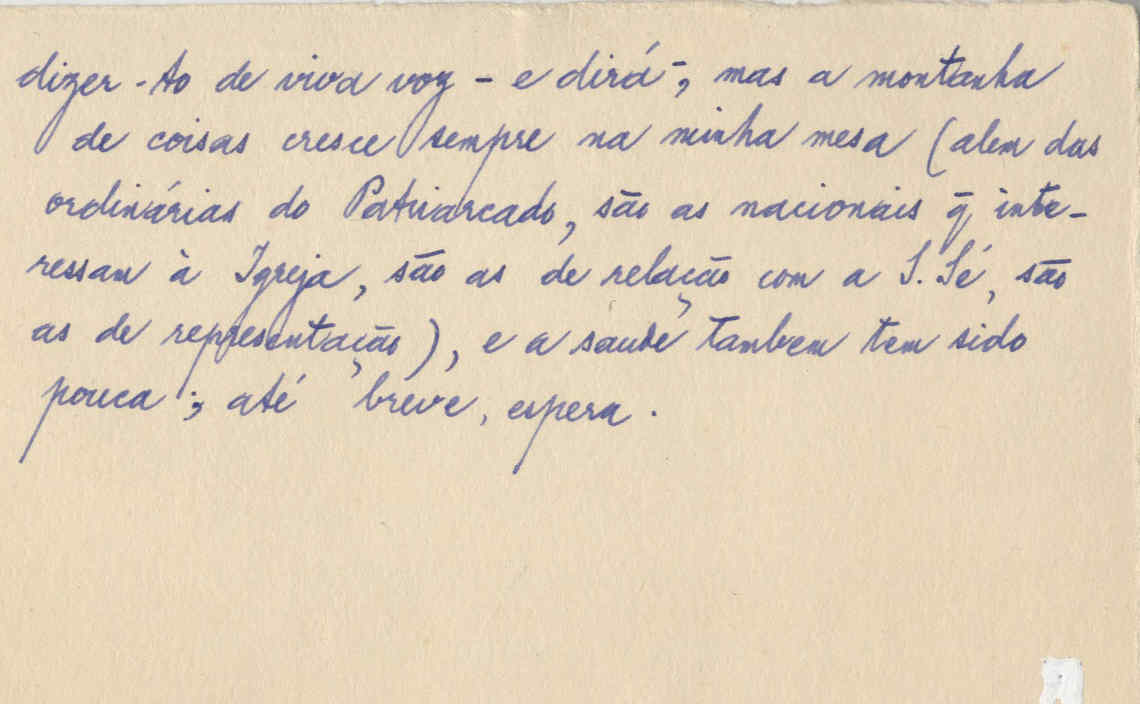 dizer-to de viva voz - e dirá -, mas a montanha
de coisas cresce sempre na minha mesa (alem das
ordinárias do Patriarcado, são as nacionais q̃ inte-
ressam à Igreja, são as de relação com a S. Sé, são
as de representação), e a saude tambem tem sido
pouca; até breve, espera.